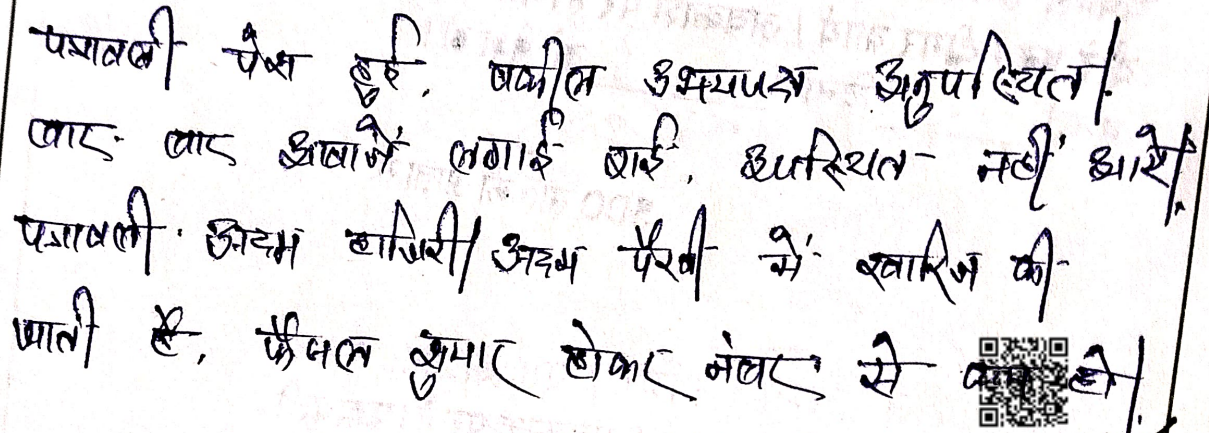 पत्रावली पेश हुई, वकील उभयपक्ष अनुपस्थित।
बार-बार आवाजें लगाई गई, उपस्थित नहीं आये।
पत्रावली अदम हाजिरी/अदम पैरवी में खारिज की
जाती है, फैसल शुमार होकर नंबर से कम हो।